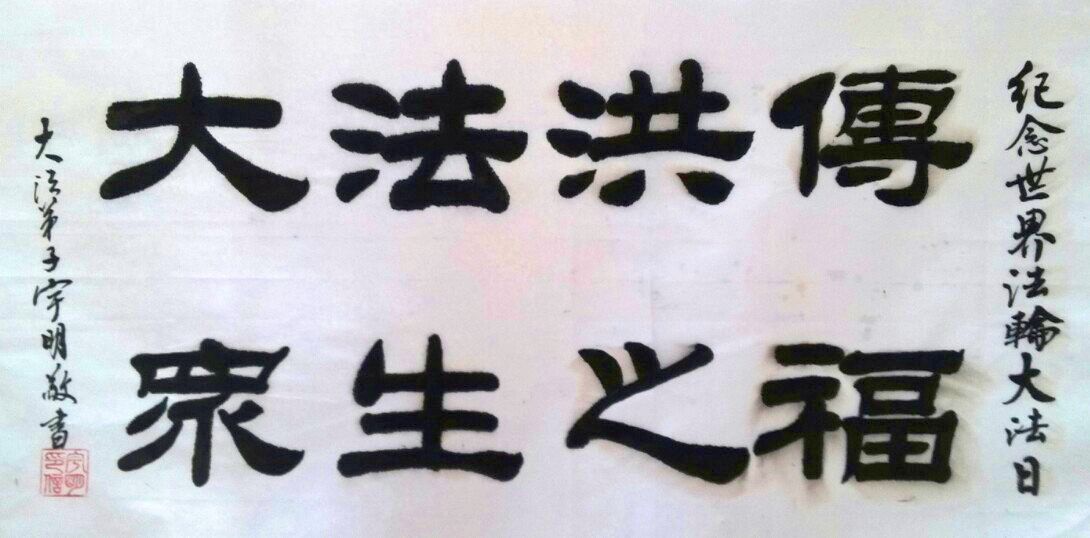 紀念世界法輪大法日
大法洪傳
眾生之福
大法弟子宇明敬書
宇明印信